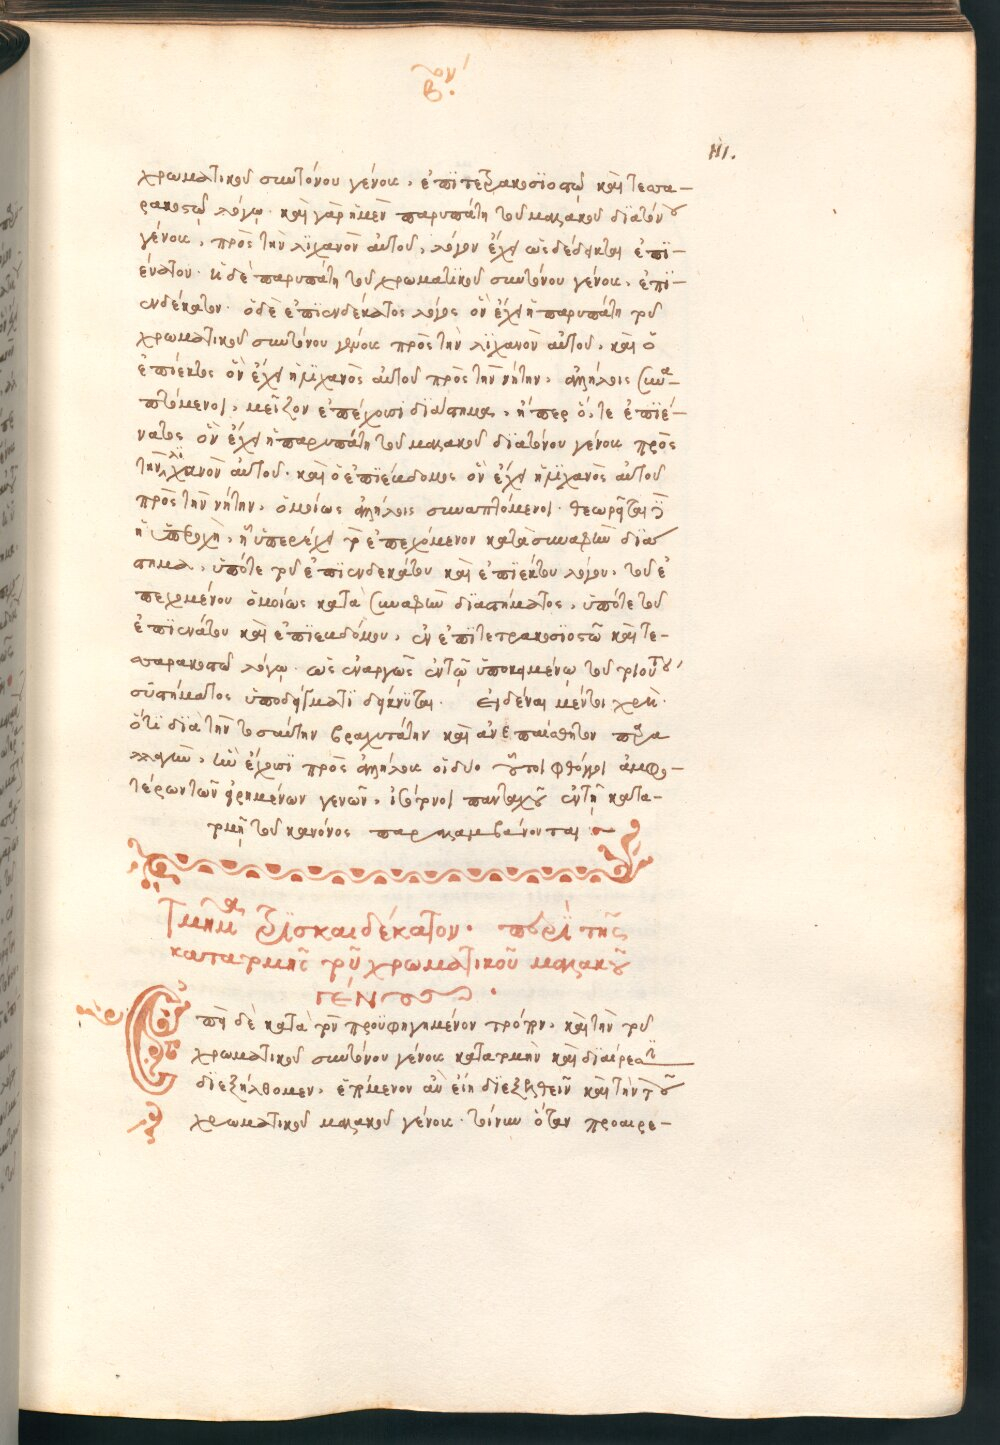 βον´
111.
χρωματικοῦ συντόνου γένους, ἐπὶ τετρακοσιοστῷ καὶ τεσσα-
ρακοστῷ λόγῳ· καὶ γὰρ ἡ μὲν παρυπάτη τοῦ μαλακοῦ διατόνου
γένους, πρὸς τὴν λιχανὸν αὐτοῦ, λόγον ἔχει ὡς δέδεικται ἐπι-
ένατον· ἡ δὲ παρυπάτη τοῦ χρωματικοῦ συντόνου γένους, ἐπι-
ενδέκατον· ὁ δὲ ἐπιενδέκατος λόγος ὃν ἔχει ἡ παρυπάτη τοῦ
χρωματικοῦ συντόνου γένους πρὸς τὴν λιχανὸν αὐτοῦ, καὶ ὁ
ἐπίεκτος ὃν ἔχει ἡ λιχανὸς αὐτοῦ πρὸς τὴν νήτην, ἀλλήλοις συνα-
πτόμενοι, μεῖζον ἐπέχουσι διάστημα, ἤπερ ὅ, τε ἐπιέ-
νατος ὃν ἔχει ἡ παρυπάτη τοῦ μαλακοῦ διατόνου γένους πρὸς
τὴν λιχανὸν αὐτοῦ· καὶ ὁ ἐπιέβδομος ὃν ἔχει ἡ λιχανὸς αὐτοῦ
πρὸς τὴν νήτην, ὁμοίως ἀλλήλοις συναπτόμενοι· θεωρεῖται
ἡ ὑπεροχὴ, ἣ ὑπερέχει τὸ ἐπεχόμενον κατὰ συναφὴν διά
στημα, ὑπό τε τοῦ ἐπιενδεκάτου καὶ ἐπιέκτου λόγου, τοῦ ἐ
πεχομένου ὁμοίως κατὰ συναφὴν διαστήματος, ὑπό τε τοῦ
ἐπιενάτου καὶ ἐπιεβδόμου, ἐν ἐπὶ τετρακοσιοστῷ καὶ τε-
σσαρακοστῷ λόγῳ· ὡς ἐναργῶς ἐν τῷ ὑποκειμένῳ τοῦ τοιούτου
συστήματος ὑποδείγματι δείκνυται. Εἰδέναι μέντοι χρὴ.
ὅτι διὰ τὴν τοσαύτην βραχυτάτην καὶ ἀνεπαίσθητον παρα
λλαγὴν, ἣν ἔχουσι πρὸς ἀλλήλους οἱ δύο οὗτοι φθόγγοι ἀμφο-
τέρων τῶν εἰρημένων γενῶν, ἰσότονοι πανταχοῦ ἐν τῇ κατα-
τομῇ τοῦ κανόνος παραλαμβάνονται
Τμῆμα τρισκαιδέκατον. περὶ τῆς
κατατομῆς τοῦ χρωματικοῦ μαλακοῦ
ΓΕΝους.
Ἐπεὶ δὲ κατὰ τὸν προϋφηγημένον τρόπον, καὶ τὴν τοῦ
χρωματικοῦ συντόνου γένους κατατομὴν καὶ διαίρεσιν
διεξήλθομεν, ἑπόμενον ἂν εἴη διεξελθεῖν καὶ τὴν τοῦ
χρωματικοῦ μαλακοῦ γένους· τοίνυν ὅταν προαιρε-